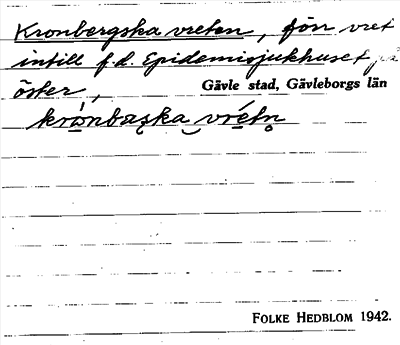 Kronbergska vreten, förr vret
intill f.d. Epidemisjukhuset på
öster,
Gävle stad, Gävleborgs län
krònbaska vrétn
FOLKE HEDBLOM 1942.